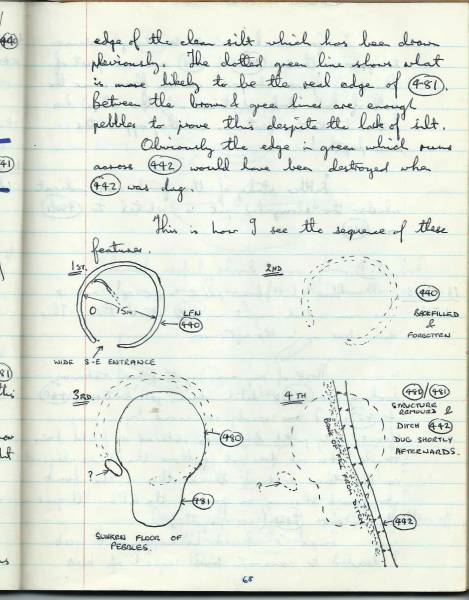 edge of the clean silt which has been drawn
previously. The dotted green line shows what
is more likely to be the real edge of 481.
Between the brown & green lines are enough
pebbles to prove this despite the lack of silt.
Obviously the edge in green which runs
across 442 would have been destroyed when
442 was dug.
This is how I see the sequence of these
features.
1ST.
0 15m
LFN
440
WIDE S-E ENTRANCE
2ND
440
BACKFILLED
&
FORGOTTEN
3RD.
480
?
481
SUNKEN FLOOR OF
PEBBLES.
4TH
480/481
STRUCTURE
REMOVED &
DITCH 442
DUG SHORTLY
AFTERWARDS.
?
BANK OF
442
68